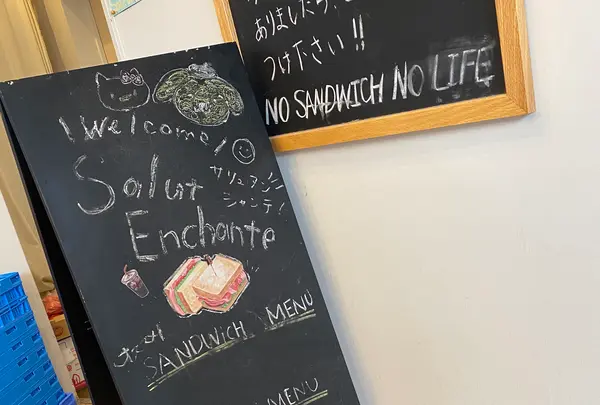 ありましたら、
つけ下さい!!
NO SANDWICH NO LIFE
Welcome!
Salut
サリュアン
シャンテ!
Enchante
SANDWICH MENU
MENU